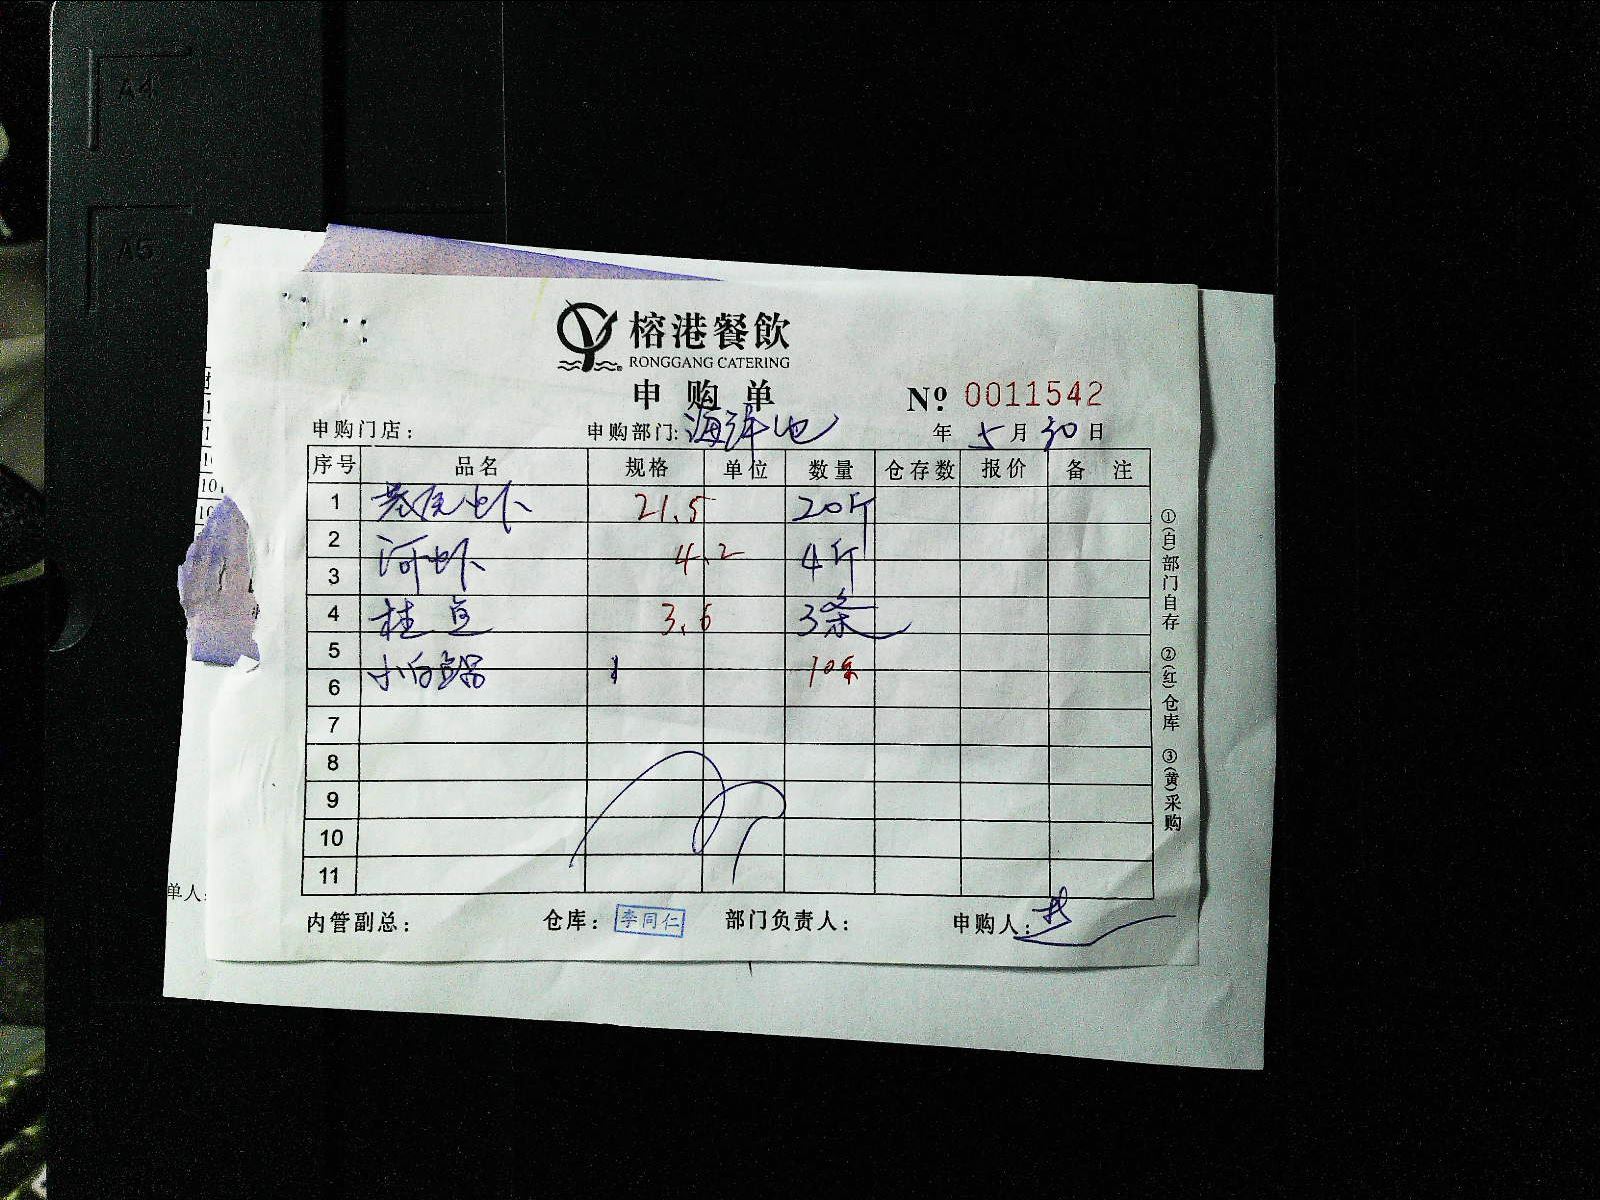 A4
A5
榕港餐飲
RONGGANG CATERING
申购单
№ 0011542
申购门店： 申购部门：海洋池 年 5 月 30 日
序号 品名 规格 单位 数量 仓存数 报价 备 注
1 基尾虾 21.5 20斤
2 河虾 4.2 4斤
3
4 桂鱼 3.6 3条
5 小白鲳 10条
6
7
8
9
10
11
内管副总： 仓库：李同仁 部门负责人： 申购人：
①(自)部门自存 ②(红)仓库 ③(黄)采购
单人：